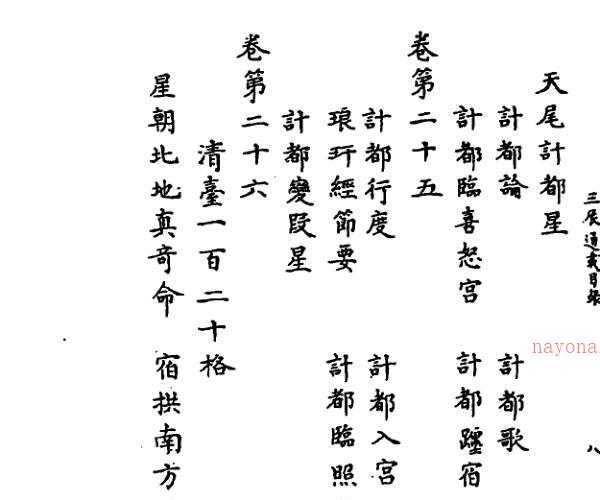 三辰通載目錄
八
天尾計都星
計都論　計都歌
計都臨喜怒宮　計都躔宿
卷第二十五
計都行度　計都入宮
琅玕經節要　計都臨照
計都變段星
卷第二十六
清臺一百二十格
星朝北地真奇命　宿拱南方
nayona